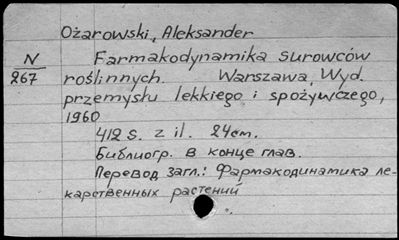 Ożarowski, Aleksander
N Farmakodynamika surowców
267 roślinnych. Warszawa, Wyd.
przemysłu lekkiego i spożywczego,
1960
412 s. z il. 24cm.
Библиогр. в конце глав.
Перевод загл.: Фармакодинамика ле-
карственных растений